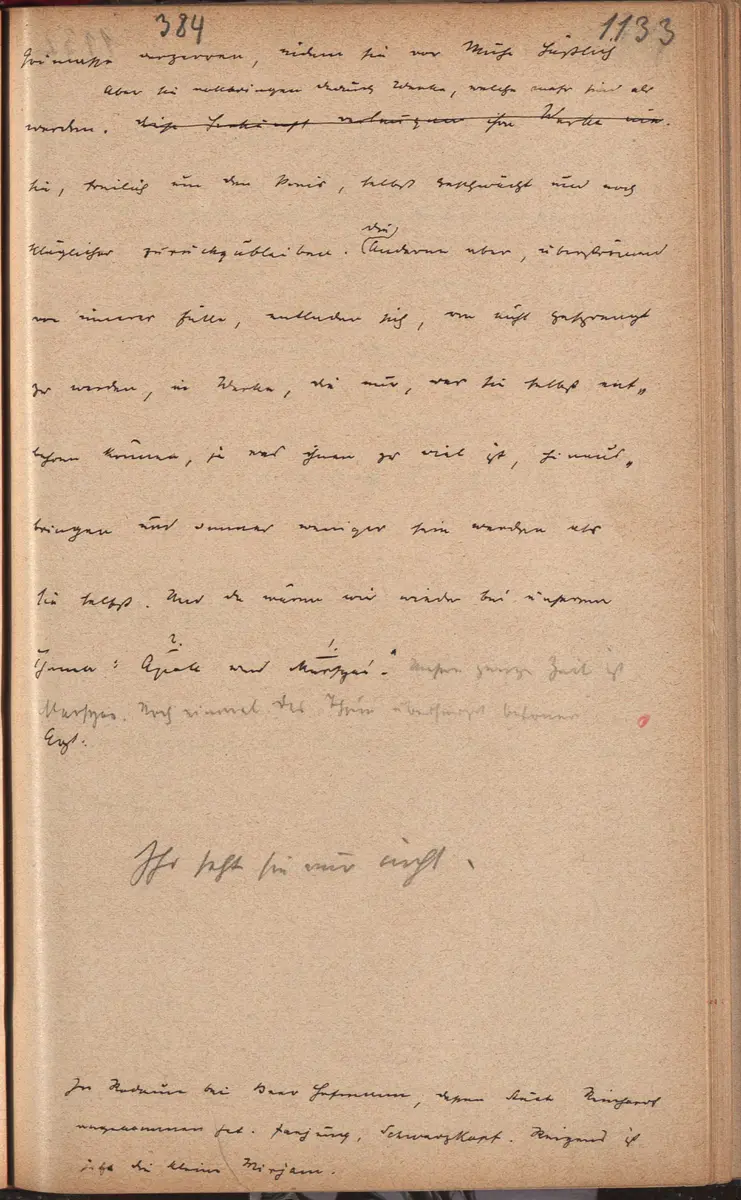 384 1133
Grimasse verzerren, indem sie vor Mühe häßlich
Aber sie vollbringen dadurch Werke, welche mehr sind als
werden. Diese ihre Werke
sie, freilich um den Preis, selbst geschwächt und noch
kläglicher zurückzubleiben. die
Anderen aber, überströmend
von innerer Fülle, entladen sich, um nicht gesprengt
zu werden, in Werke, die nur, was sie selbst ent„
behren können, ja was ihnen zu viel ist, hinaus„
bringen und immer weniger sein werden als
sie selbst. Und da wären wir wieder bei unserem
? !
Thema: Apoll und Marsyas."
Unsere ganze Zeit ist
Marsyas. Noch einmal. Das Thun überhaupt
Ihr seht sie nur nicht.
In Rodaun bei Beer Hofmann, dessen Stück Reinhardt
angenommen hat. Schwarzkopf. Reizend ist
jetzt die kleine Mirjam.